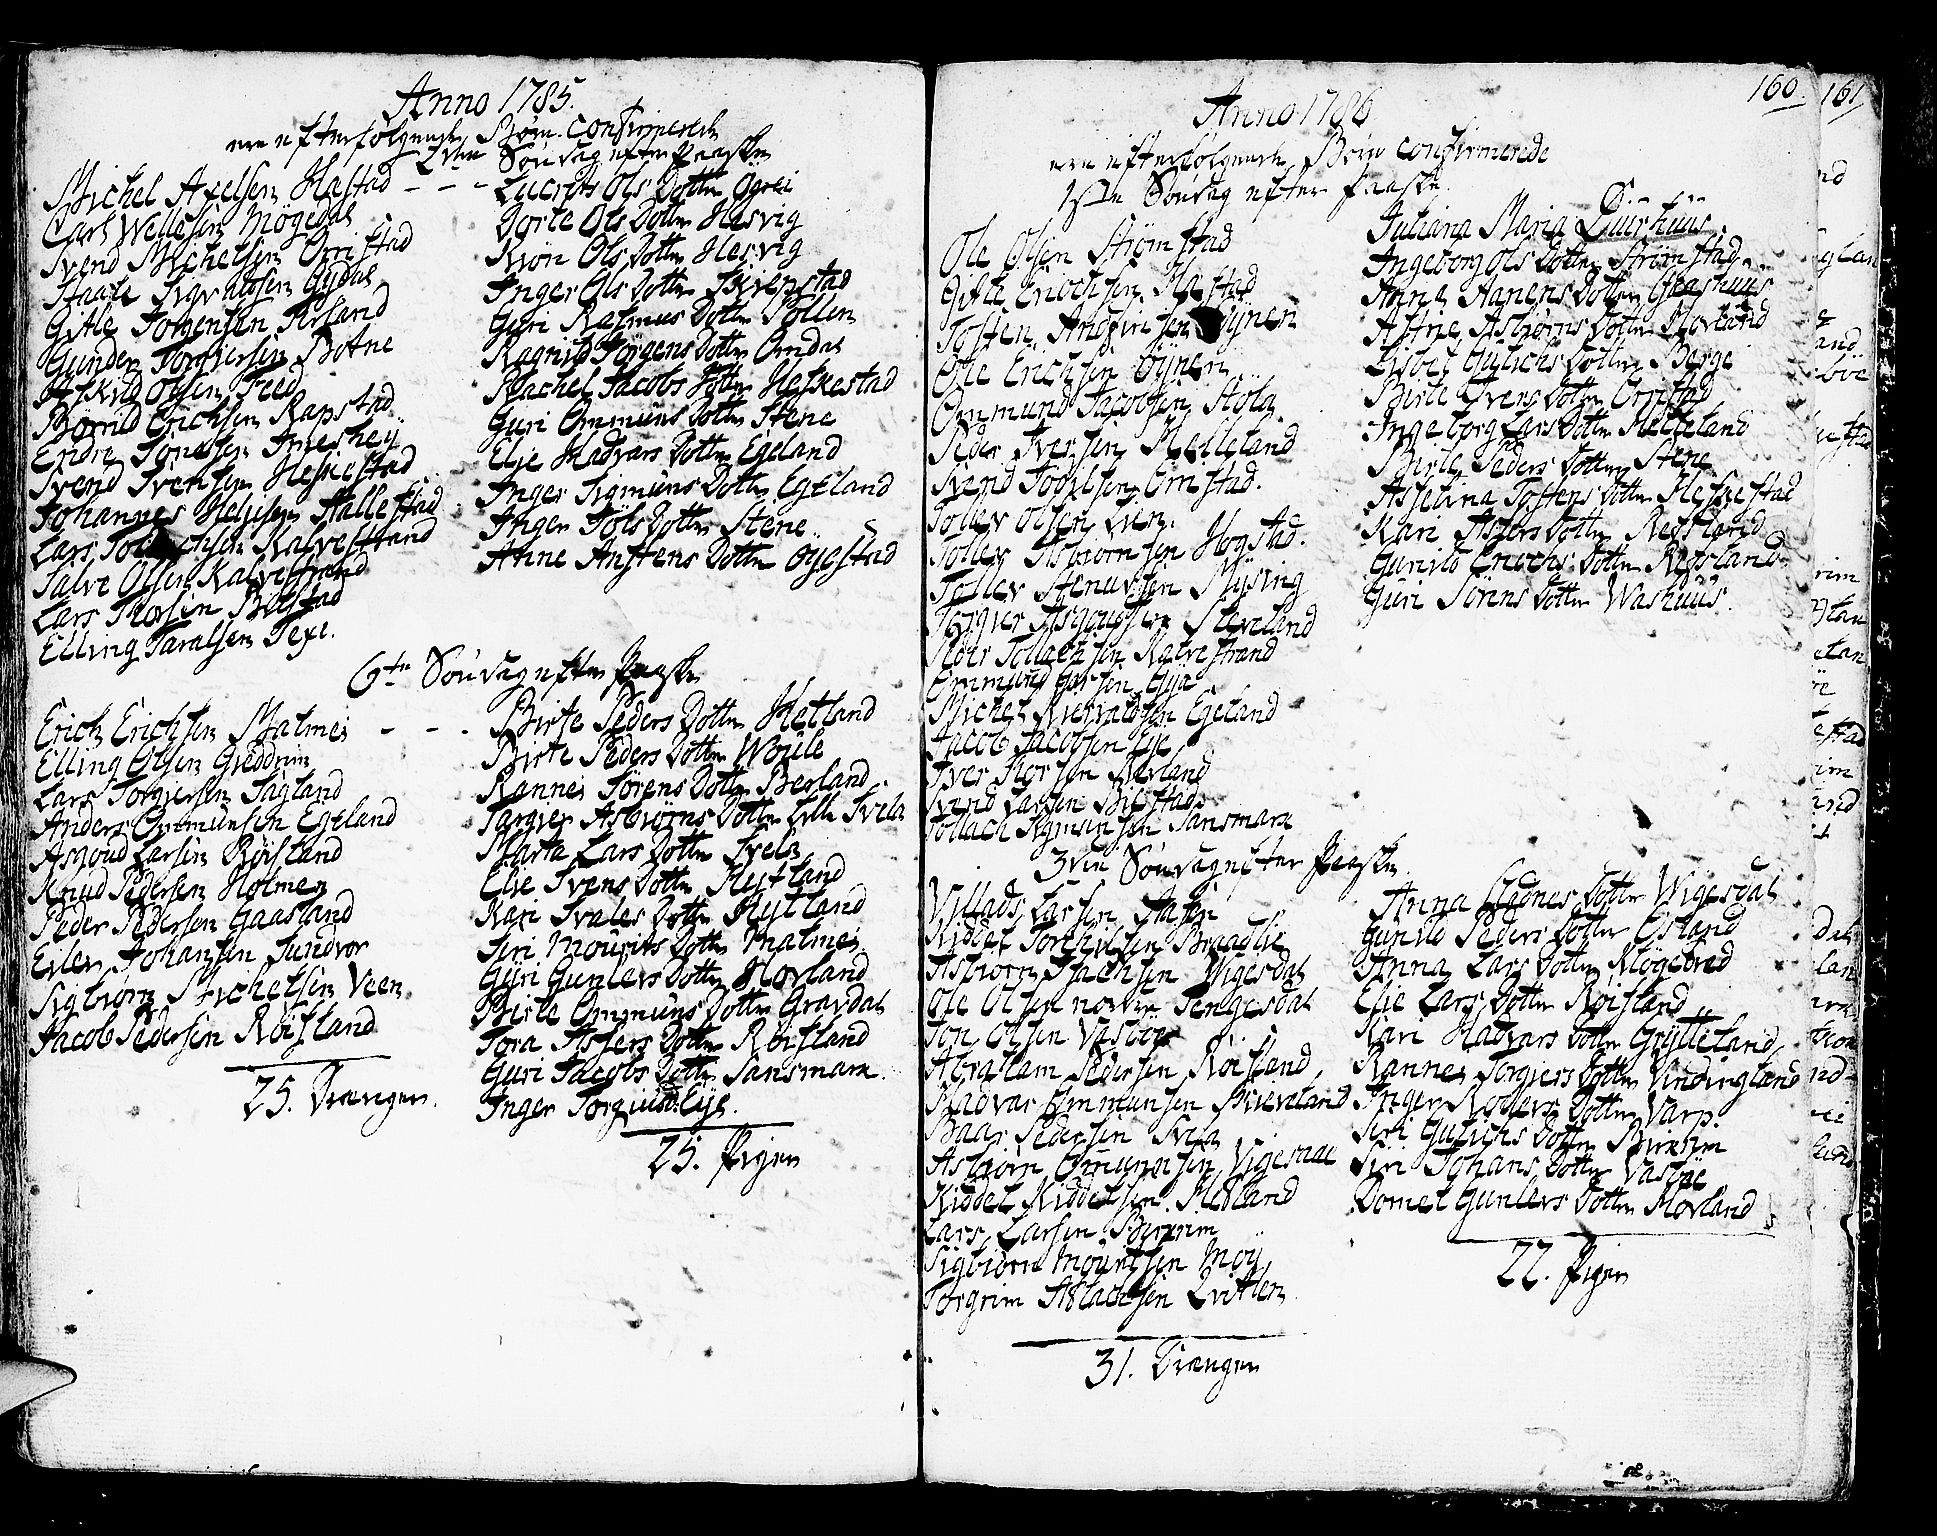 Anno 1785.
ere efterfølgende Børn confirmerede
2den Søndag efter Paaske
Michel Axelsen Hæstad - - -
Carl Wellesen Møgedal
Svend Michelsen Orrestad
Staale Sigvaldsen Gydal
Gitle Torgersen Årland
Gunder Torgiersen Botne
Askild Olsen Feed
Børild Erichsen Rapstad
Endre Jonassen
Svend Svensen Heskestad
Johannes Helgesen Stallestad
Lars Kalvestrand
Salve Olsen Kalvestrand
Lars Bilstad
Elling Taralsen Texe.
Lucrets Ols Dotter Ogrei
Dorte Ols Dotter Hesvig
Kiøn Ols Dotter Hesvig
Inger Ols Dotter Skiepstad
Guri Rasmus Dotter Pollen
Ragnild Jørgens Dotter Omdal
Rachel Jacobs Dotter Heskestad
Guri Ommuns Dotter Stene
Elje Hadvars Dotter Egeland
Inger Sigmuns Dotter Egeland
Inger Jols Dotter Stene
Anne Anstens Dotter Øyestad
6te Søndag efter Paaske
Erich Erichsen Malmei - - -
Elling Olsen Gieddrim
Lars Torgiersen Sagland
Anders Ommunsen Egeland
Asgoud Larsen Røisland
Knud Pedersen Holmen
Peder Pedersen Gaasland
Eiler Johansen Sundvor
Sigbiørn Michelsen Veen
Jacob Pedersen Røisland
25. Drænger.
Birte Peders Dotter Hetland
Birte Peders Dotter Woule
Rannei Sørens Dotter Berland
Targier Asbiørns Dotter Lille Svela
Marta Lars Dotter Svela
Elie Svens Dotter Hytland
Kari Svales Dotter Hytland
Siri Mourits Dotter Malmei
Guri Gunlevs Dotter Hovland
Birte Ommuns Dotter Gravdal
Tora Assers Dotter Røisland
Guri Jacobs Dotter Sansmark.
Inger Torgiusd: Eje.
25. Piger
160.
161
Anno 1786
ere efterfølgende Børn confirmerede
1ste Søndag efter Paaske.
Ole Olsen Strømstad
Gitle Enochsen Hæstad
Tosten Andfinsen Øynen
Ole Erichsen Øynen
Ommund Jacobsen Stola
Peder Iversen Helleland
Svend Orrestad.
Tollev Olsen Lien.
Tollev Asbiørnsen Høgstad.
Tollev Stenersen Mysing
Torgier Asgoudsen Steveland
Peder Tollachsen Kalvestrand
Ommund Gyja
Michel Egeland
Jacob Jacobsen Eje
Iver Årland
Svend Larsen Bilstad
Tollach Sigmunsen Sansmark
Juliana Maria Quirhuus
Ingeborg Ols Dotter Strømstad
Anna Aanens Dotter Grashuus
Astrie Asbiørns Dotter Hovland
Lisbet Gulichs Dotter Berge
Birte Svens Dotter Orrestad
Ingeborg Lars Dotter Helleland
Birte Peders Dotter Stene
Asselina Tostens Dotter Heskestad
Kari Assers Dotter Refsland
Gunild Enochs Dotter Refsland
Guri Sørens Dotter Washuus.
3die Søndag efter Paaske.
Villads Larsen
Kiddel Torchilsen Braadlie
Asbiørn Isachsen Vigesdal
Ole Olsen nordre Tengesdal
Jon Olsen Vasboe
Abraham Pedersen Røisland,
Hadvar Ommunsen Skieveland
Baar Pedersen Svela
Asbiørn Omundsen Vigesaae
Kiddel Kiddelsen Hedland
Lars Larsen Birkrim
Sigbiørn Mouritsen Moy
Torgrim Aslachsen Qvitlen
31. Drænger
Anna Stednes Dotter Wigesdal
Gunild Peders Dotter Østand
Anna Lars Dotter Møgebred
Elie Lars Dotter Røisland
Kari Hadvars Dotter Grytteland
Rannei Torgiers Dotter Vindingland
Inger Rogers Dotter Varp.
Siri Gulichs Dotter Birkrim
Siri Johans Dotter Vasboe
Domel Gunlevs Dotter Hovland
22. Piger